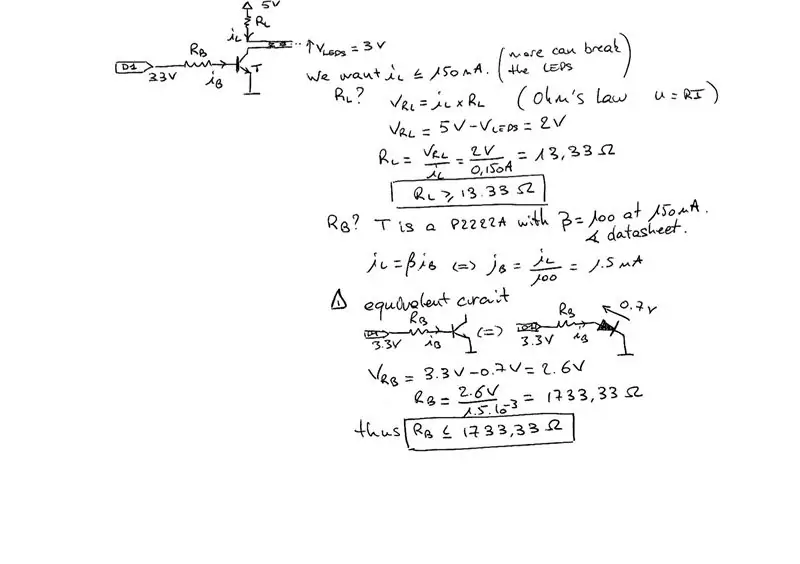 5V
R_L
i_L
↑V_LEDS = 3V
R_B
D1
3.3V
i_B
T
We want i_L ≤ 150 mA. (more can break the LEDS)
R_L? V_RL = i_L × R_L (Ohm's Law u = RI)
V_RL = 5V - V_LEDS = 2V
R_L = V_RL / i_L = 2V / 0,150A = 13,33 Ω
R_L ≥ 13.33 Ω
R_B? T is a P2222A with β = 100 at 150 mA.
& datasheet.
i_L = β i_B <=> i_B = i_L / 100 = 1.5 mA
⚠ equivalent circuit
R_B D1 3.3V i_B <=> R_B D1 3.3V i_B 0.7V
V_RB = 3.3V - 0.7V = 2.6V
R_B = 2.6V / 1.5.10^-3 = 1733,33 Ω
thus R_B ≤ 1733,33 Ω